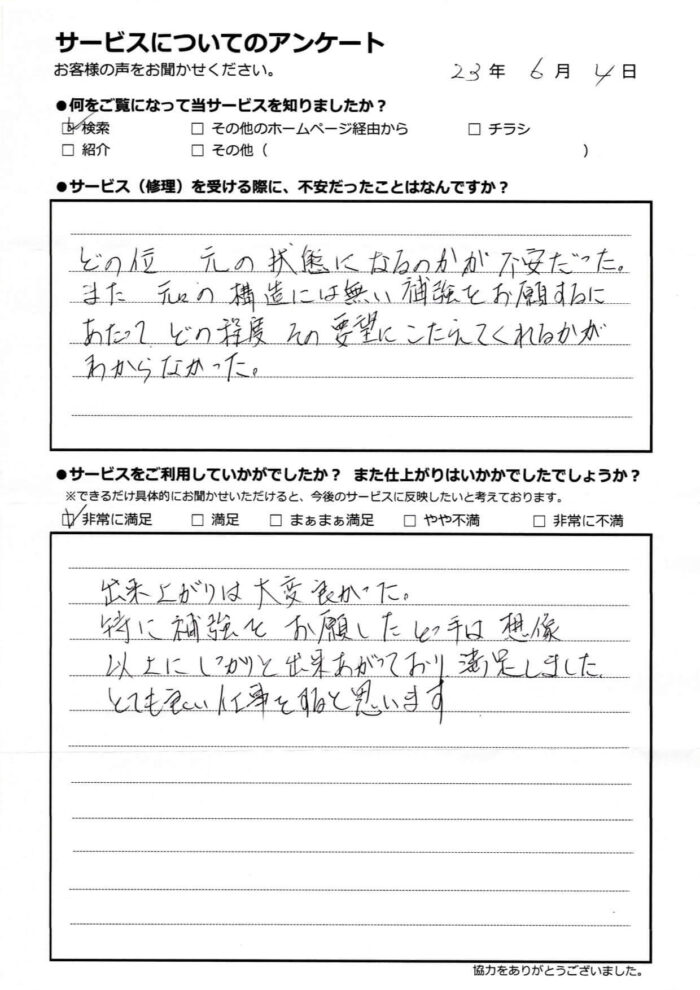 サービスについてのアンケート
お客様の声をお聞かせください。
23年 6月 4日
●何をご覧になって当サービスを知りましたか？
☑ 検索 □ その他のホームページ経由から □ チラシ
□ 紹介 □ その他（ ）
●サービス（修理）を受ける際に、不安だったことはなんですか？
どの位 元の状態になるのかが不安だった。
また 元々の構造には無い補強をお願するに
あたって どの程度 その要望にこたえてくれるかが
わからなかった。
●サービスをご利用していかがでしたか？ また仕上がりはいかかでしたでしょうか？
※できるだけ具体的にお聞かせいただけると、今後のサービスに反映したいと考えております。
☑ 非常に満足 □ 満足 □ まぁまぁ満足 □ やや不満 □ 非常に不満
出来上がりは大変良かった。
特に補強をお願したとっ手は想像
以上にしっかりと出来あがっており満足しました。
とても良い仕事をすると思います
協力をありがとうございました。